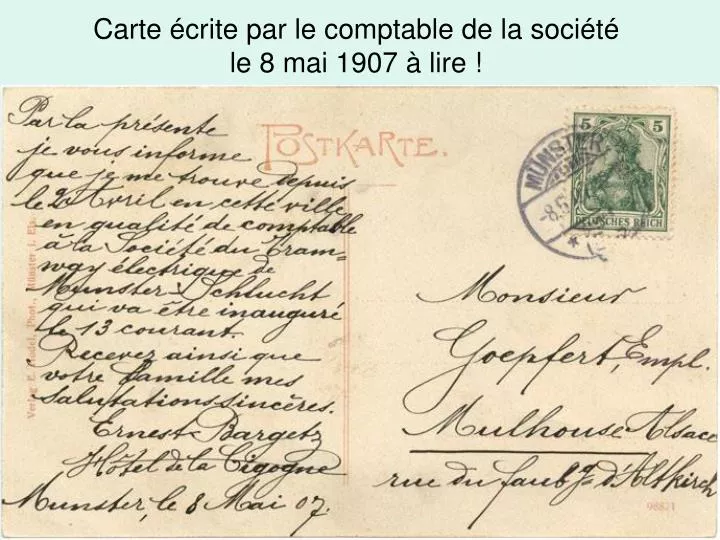 Carte écrite par le comptable de la société
le 8 mai 1907 à lire !
Par la présente
je vous informe
que je me trouve depuis
le 2 Avril en cette ville
en qualité de comptable
à la Société du Tram-
way électrique de
Munster-Schlucht
qui va être inauguré
le 13 courant.
Recevez ainsi que
votre famille mes
salutations sincères.
Ernest Bargetz
Hôtel de la Cigogne
Munster, le 8 Mai 07.
POSTKARTE.
5 5
DEUTSCHES REICH
MÜNSTER
Monsieur
Goepfert, Empl.
Mulhouse Alsace
rue du faubg d'Altkirch
98821